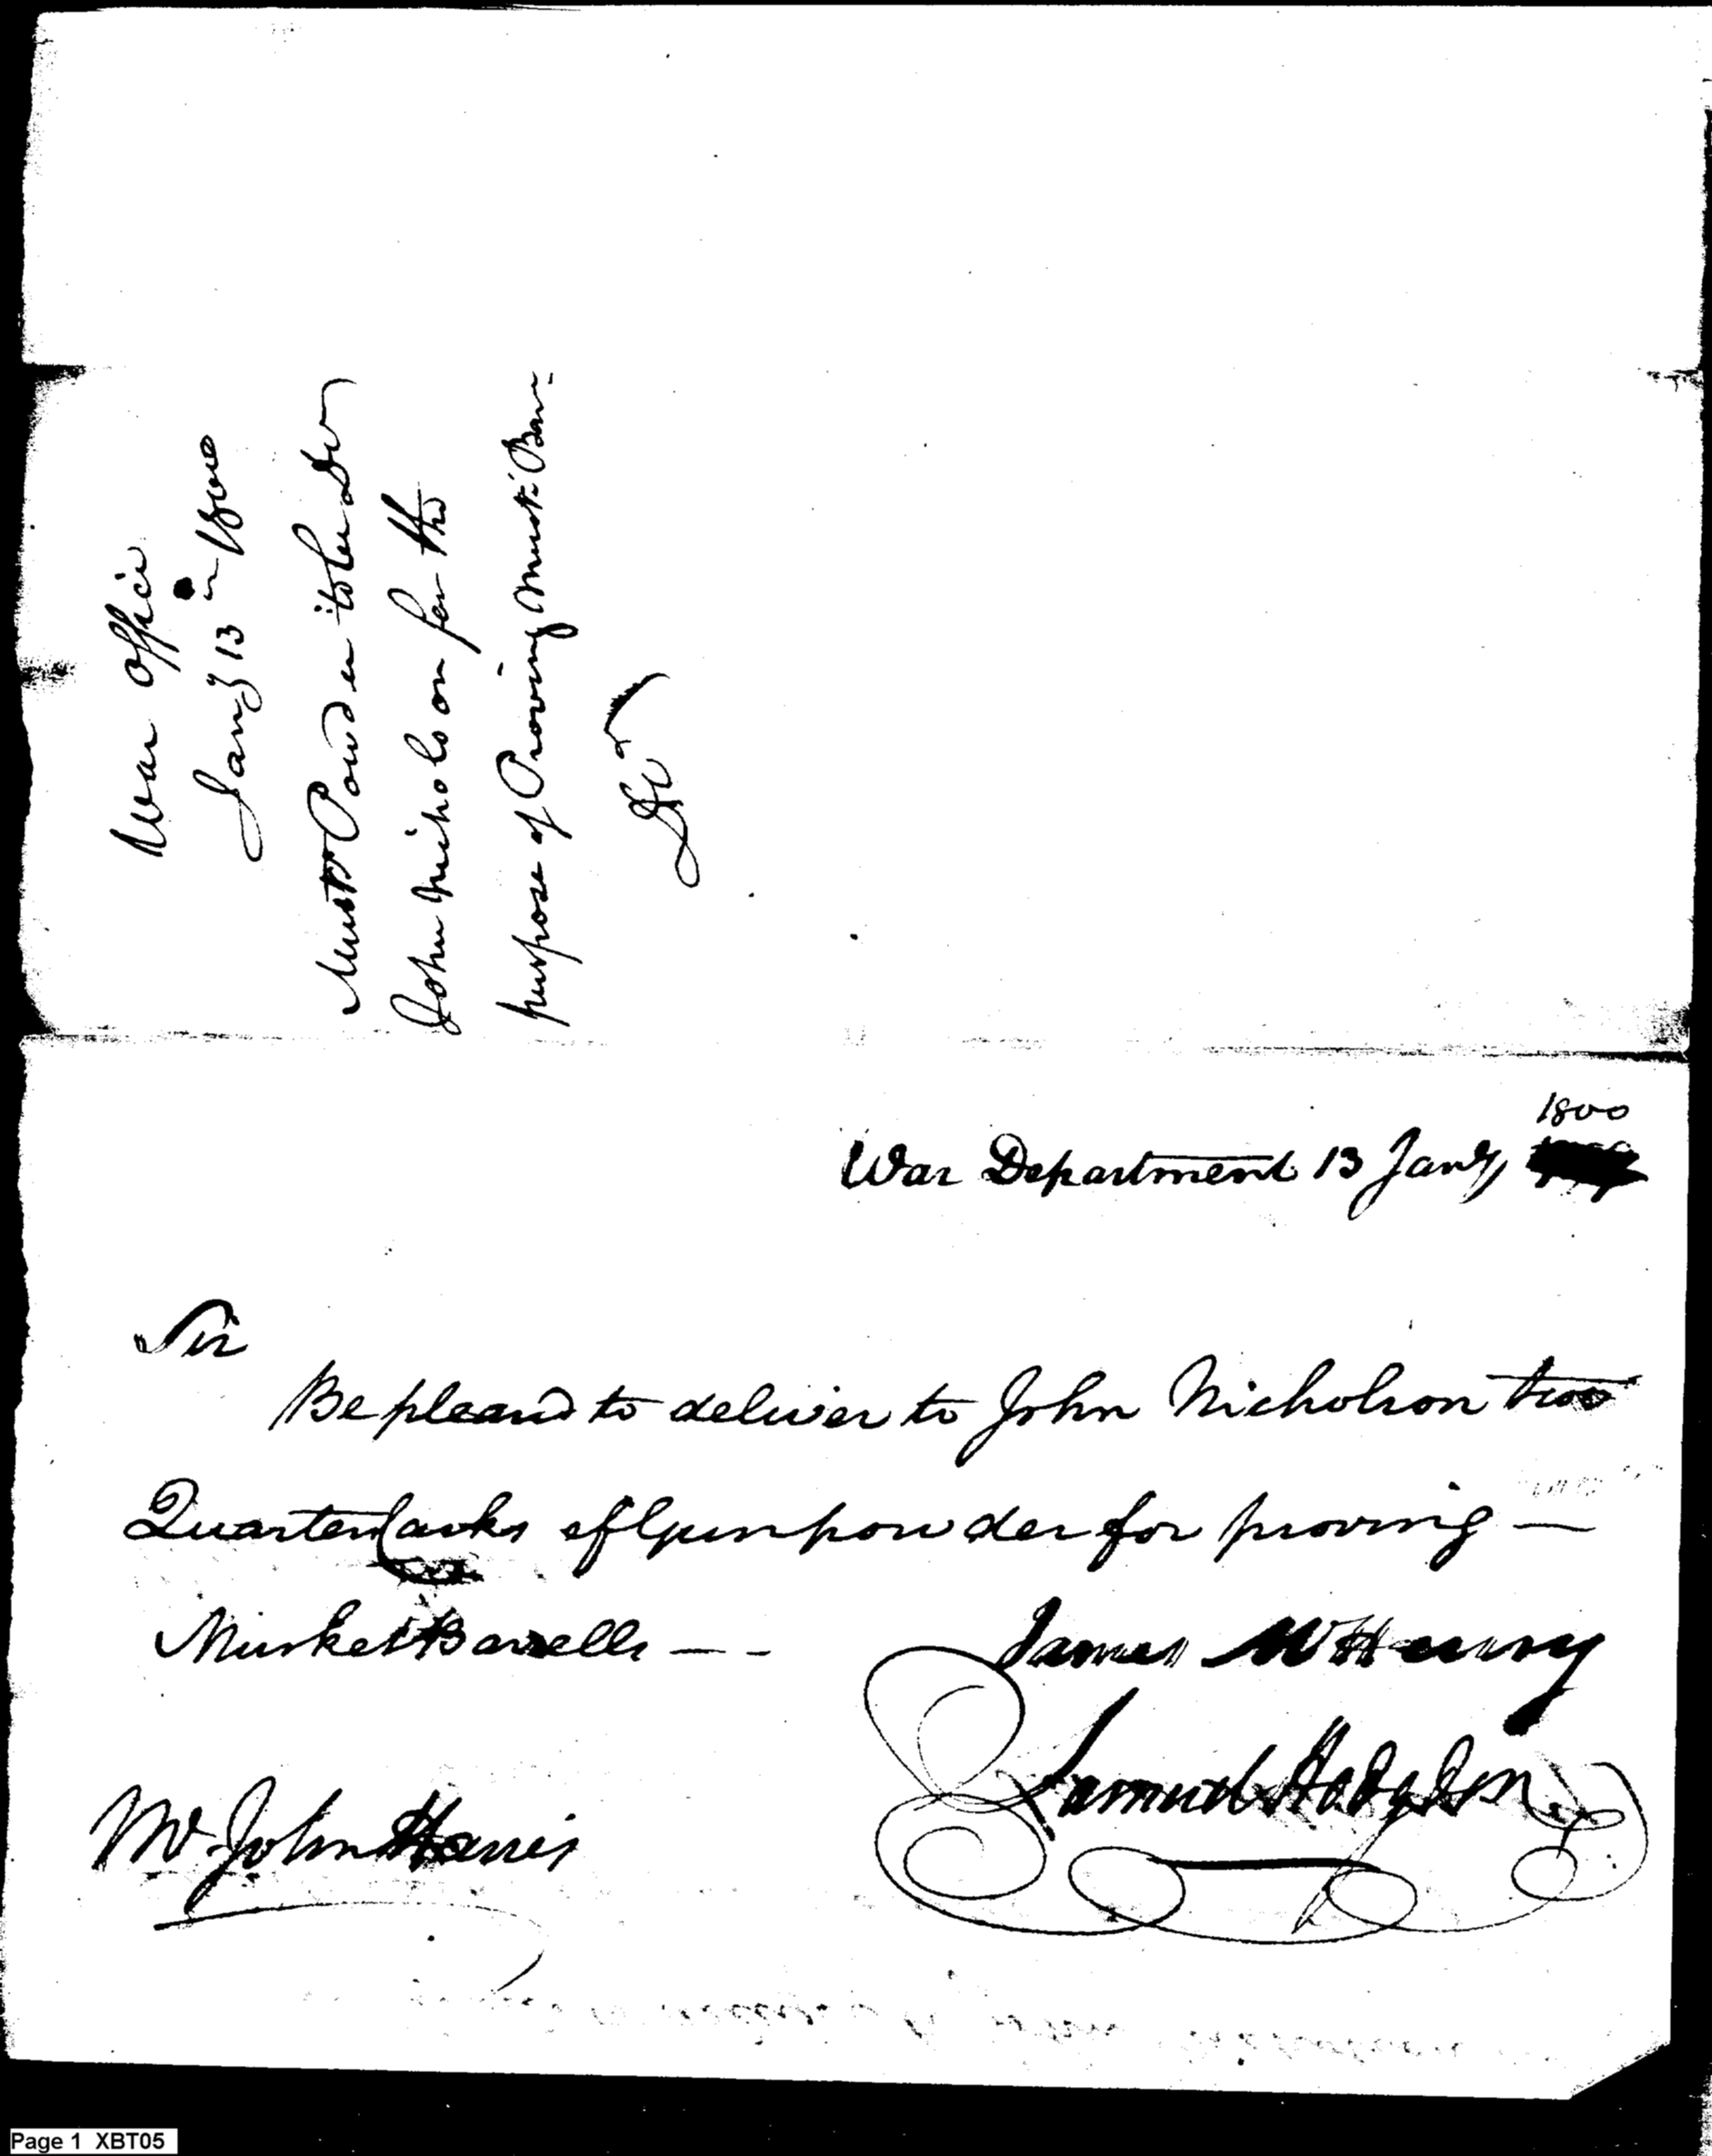 War Office
Jany 13th 1800
Muskt Powder to be Dd
John Nicholson for the
purpose of Proving Muskt Bar-
1800
War Department 13 Jany
Sir
Be pleas'd to deliver to John Nicholson two
Quarter Casks of Gunpowder for proving —
Musket Barrells — -
James McHenry
Samuel Hodgdon
Mr John Harris
Page 1 XBT05